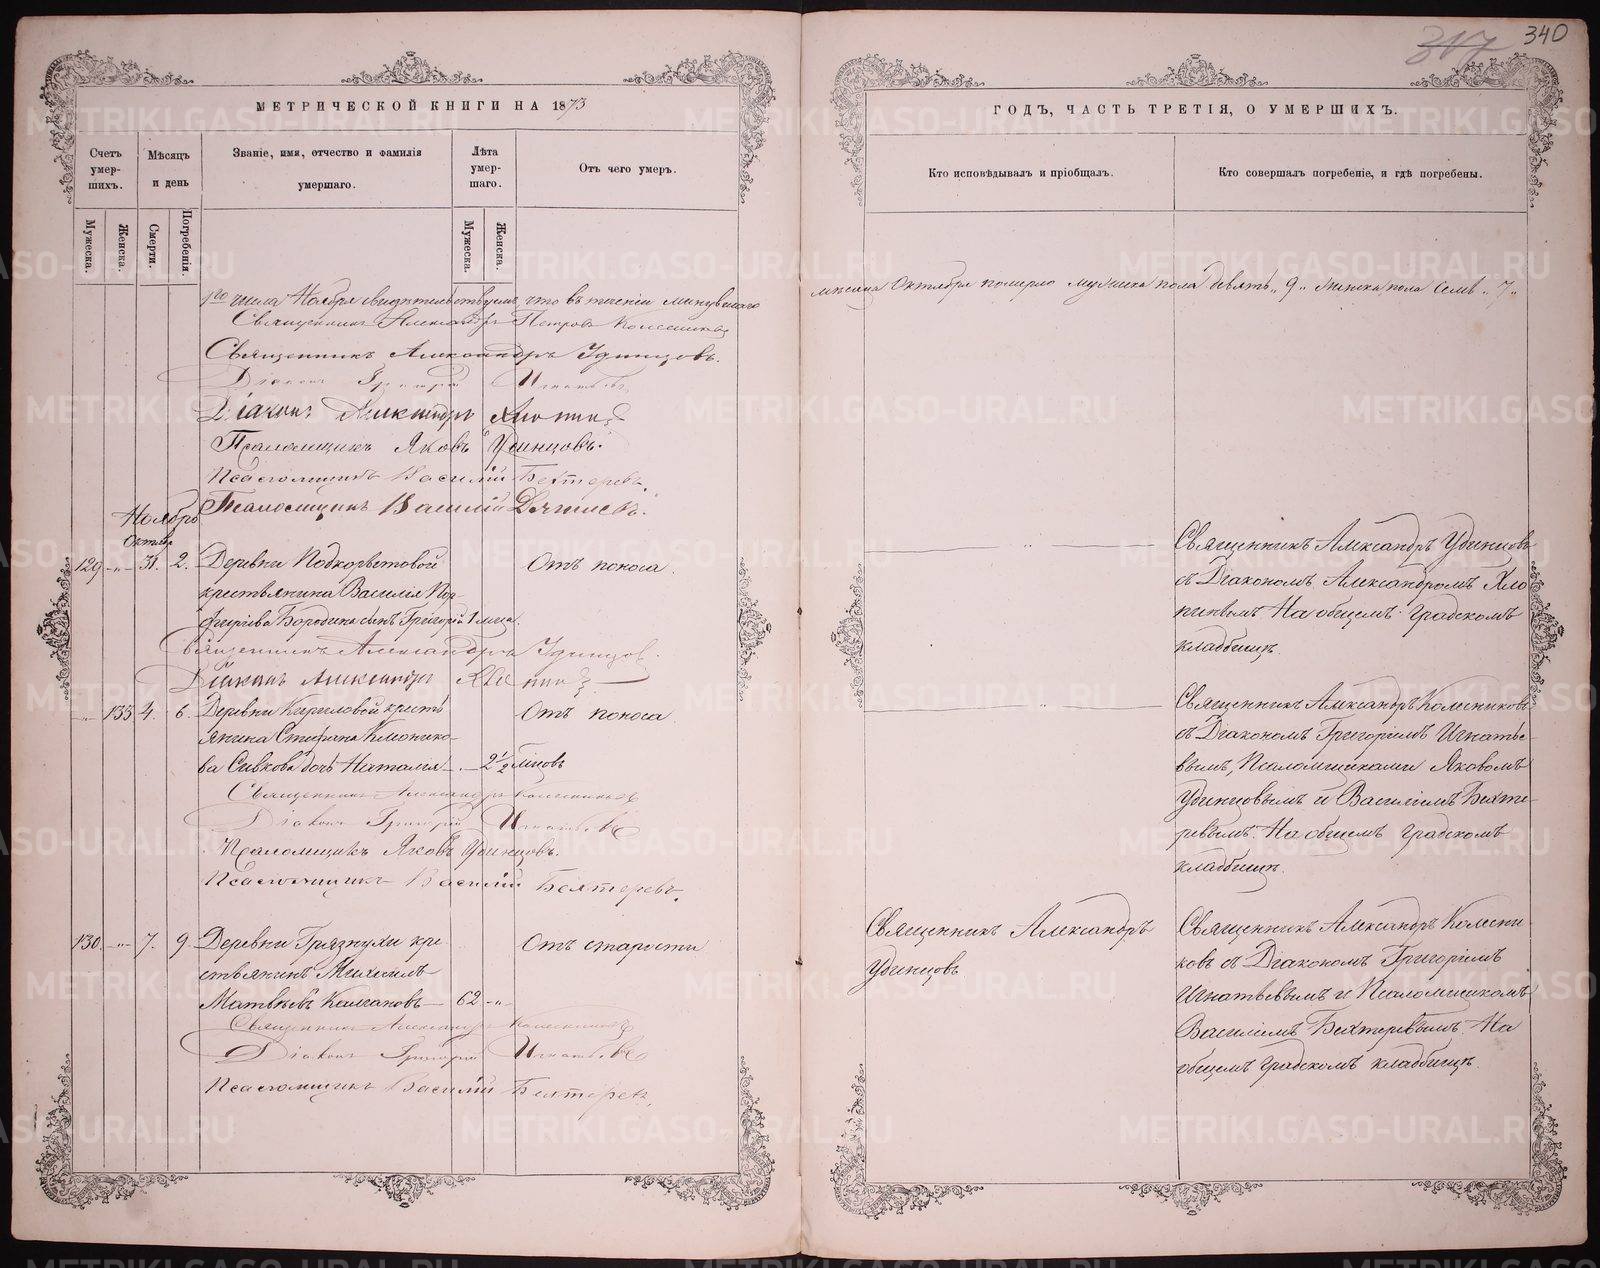 340
317
МЕТРИЧЕСКОЙ КНИГИ НА 1873
ГОДЪ, ЧАСТЬ ТРЕТІЯ, О УМЕРШИХЪ.
Счетъ умер-шихъ.
Мѣсяцъ и день
Званіе, имя, отчество и фамилія умершаго.
Лѣта умер-шаго.
Отъ чего умеръ.
Кто исповѣдывалъ и пріобщалъ.
Кто совершалъ погребеніе, и гдѣ погребены.
Мужеска.
Женска.
Смерти.
Погребенія.
Мужеска.
Женска.
1го числа Ноября свидѣтельствуемъ, что въ теченіи минувшаго
мѣсяца Октября померло мужеска пола девять „9„ женска пола семь „7„
Священникъ Александръ Петровъ Колесниковъ
Священникъ Александръ Удинцовъ.
Діаконъ Григорій Игнатьевъ
Діаконъ Александръ Хлопинъ
Псаломщикъ Яковъ Удинцовъ.
Псаломщикъ Василій Бехтеревъ.
Псаломщикъ Василій
Ноябрь
Октябр
129 „ 31. 2. Деревни Подкорытовой
Отъ поноса.
крестьянина Василія Пор-
фиріева Бородина сынъ Григорій 1 мѣсца.
Священникъ Александръ Удинцов.
Діаконъ Александръ Хлопинъ
Священникъ Александръ Удинцовъ
съ Діакономъ Александромъ Хло
пинымъ. На общемъ градскомъ
кладбищѣ.
„ 133 4. 6. Деревни Кирилловой кресть
Отъ поноса.
янина Стефана
ва Сивкова дочь Наталія 2½ мѣсцов
Священникъ Александръ Колесниковъ
Діаконъ Григорій Игнатьевъ
Псаломщикъ Яковъ Удинцовъ.
Псаломщикъ Василій Бехтеревъ.
Священникъ Александръ Колесниковъ
съ Діакономъ Григоріемъ Игнатье-
вымъ, Псаломщиками Яковомъ
Удинцовымъ и Василіемъ Бехте-
ревымъ. На общемъ градскомъ
кладбищѣ.
130. „ 7. 9. Деревни Грязнухи кре
Отъ старости
стьянинъ Михаилъ
Матвѣевъ Калгановъ 62 „
Священникъ Александръ Колесниковъ
Діаконъ Григорій Игнатьевъ
Псаломщикъ Василій Бехтеревъ.
Священникъ Александръ
Удинцовъ
Священникъ Александръ Колесни-
ковъ съ Діакономъ Григоріемъ
Игнатьевымъ и Псаломщикомъ
Василіемъ Бехтеревымъ. На
общемъ градскомъ кладбищѣ.
METRIKI.GASO-URAL.RU